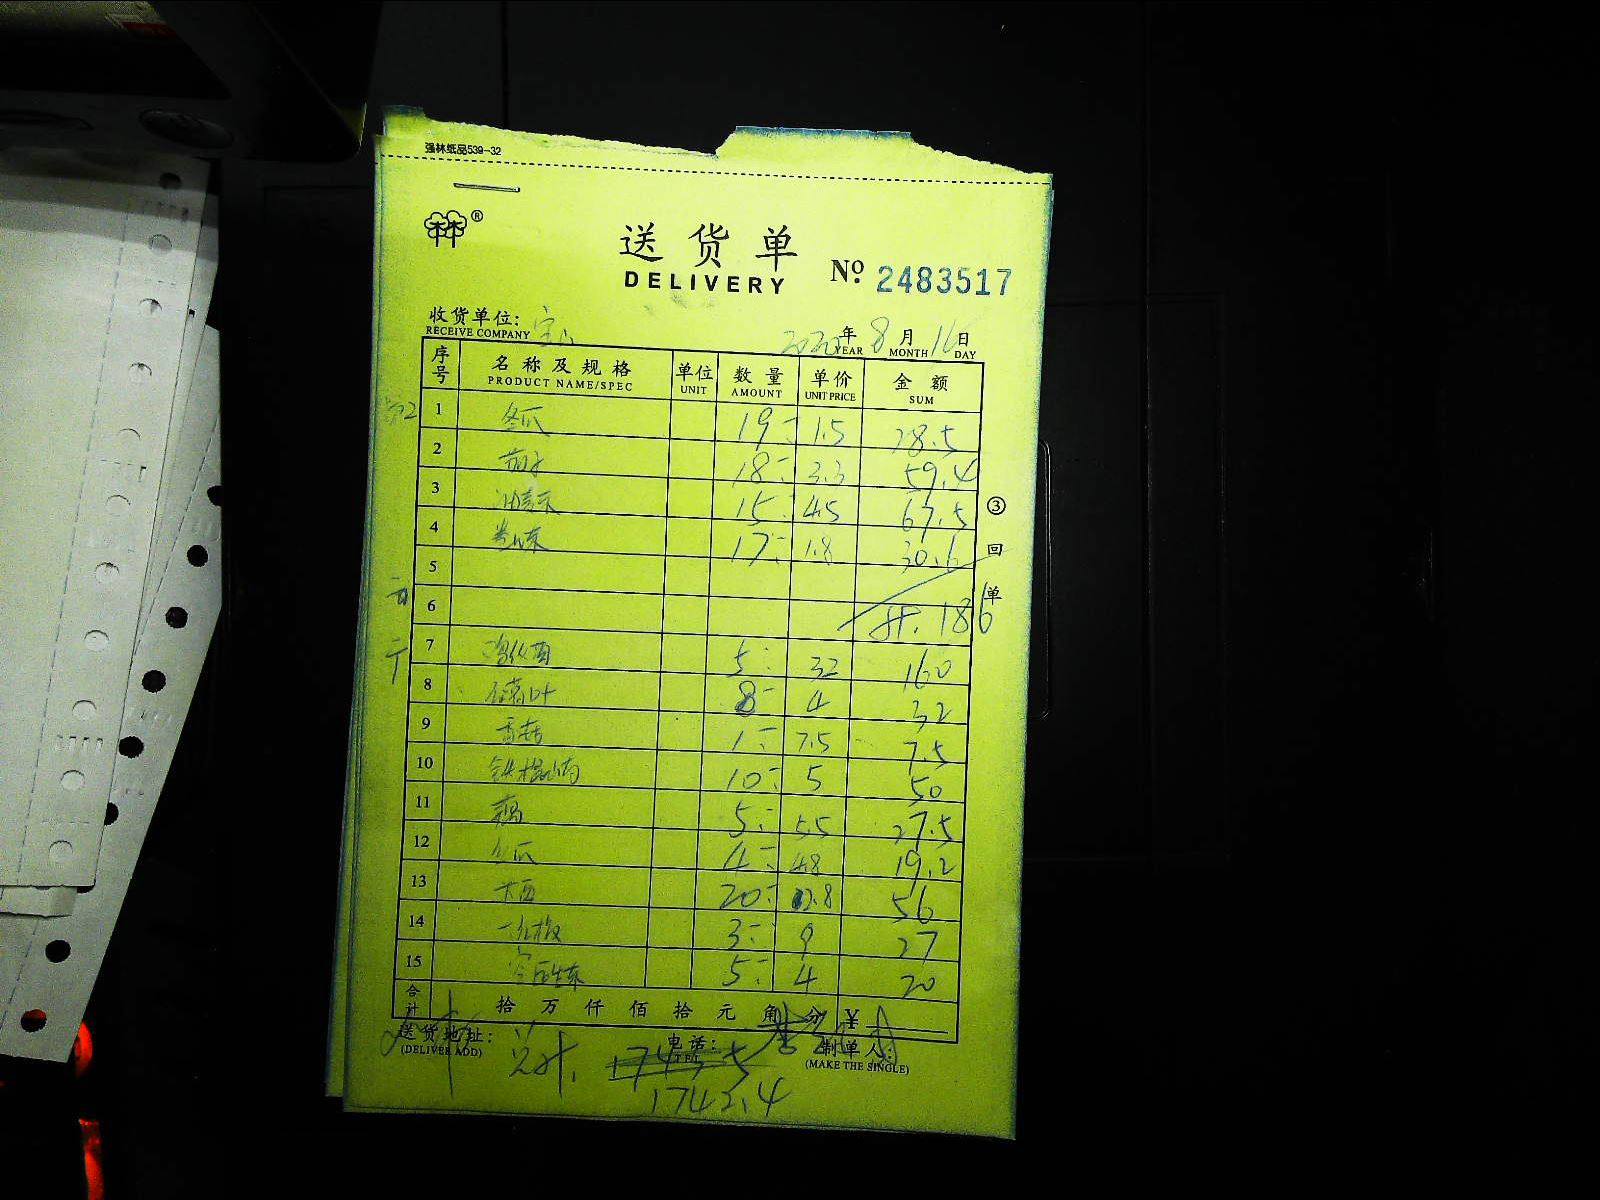 强林纸品539-32
林林®
送货单
DELIVERY
No. 2483517
收货单位: 宝山 2020年8月16日
RECEIVE COMPANY YEAR MONTH DAY
序号 名称及规格 单位 数量 单价 金额
PRODUCT NAME/SPEC UNIT AMOUNT UNIT PRICE SUM
1 冬瓜 19 1.5 28.5
2 茄子 18 3.3 59.4
3 油麦菜 15 4.5 67.5
4 17 1.8 30.6
5
6 计. 186
7 5 32 160
8 8 4 32
9 香菇 1 7.5 7.5
10 10 5 50
11 藕 5 5.5 27.5
12 丝瓜 4 4.8 19.2
13 大豆 20 2.8 56
14 3 9 27
15 5 4 20
合计 拾万仟佰拾元角分 ¥
送货地址: 电话: 制单人:
(DELIVER ADD) TEL (MAKE THE SINGLE)
总计. 1743.5
1742.4
③回单